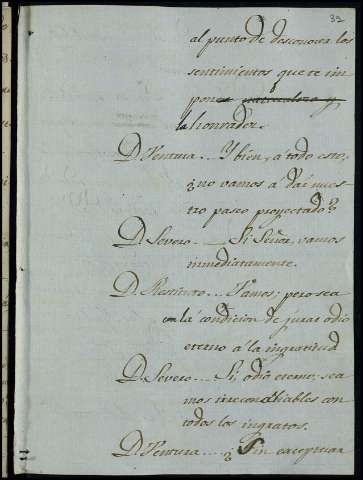 32
al punto de desconocer los
sentimientos que te im
pone
la honradez.
D. Ventura... Y bien, á todo esto,
¿no vamos a dar nues
tro paseo proyectado?
D. Severo... Si Señor, vamos
inmediatamente.
D. Restituto... Vamos; pero sea
con la condicion de jurar odio
eterno á la ingratitud
D. Severo... Si, odio eterno; sea
mos irreconciliables con
todos los ingratos.
D. Ventura... ¿Sin exceptuar